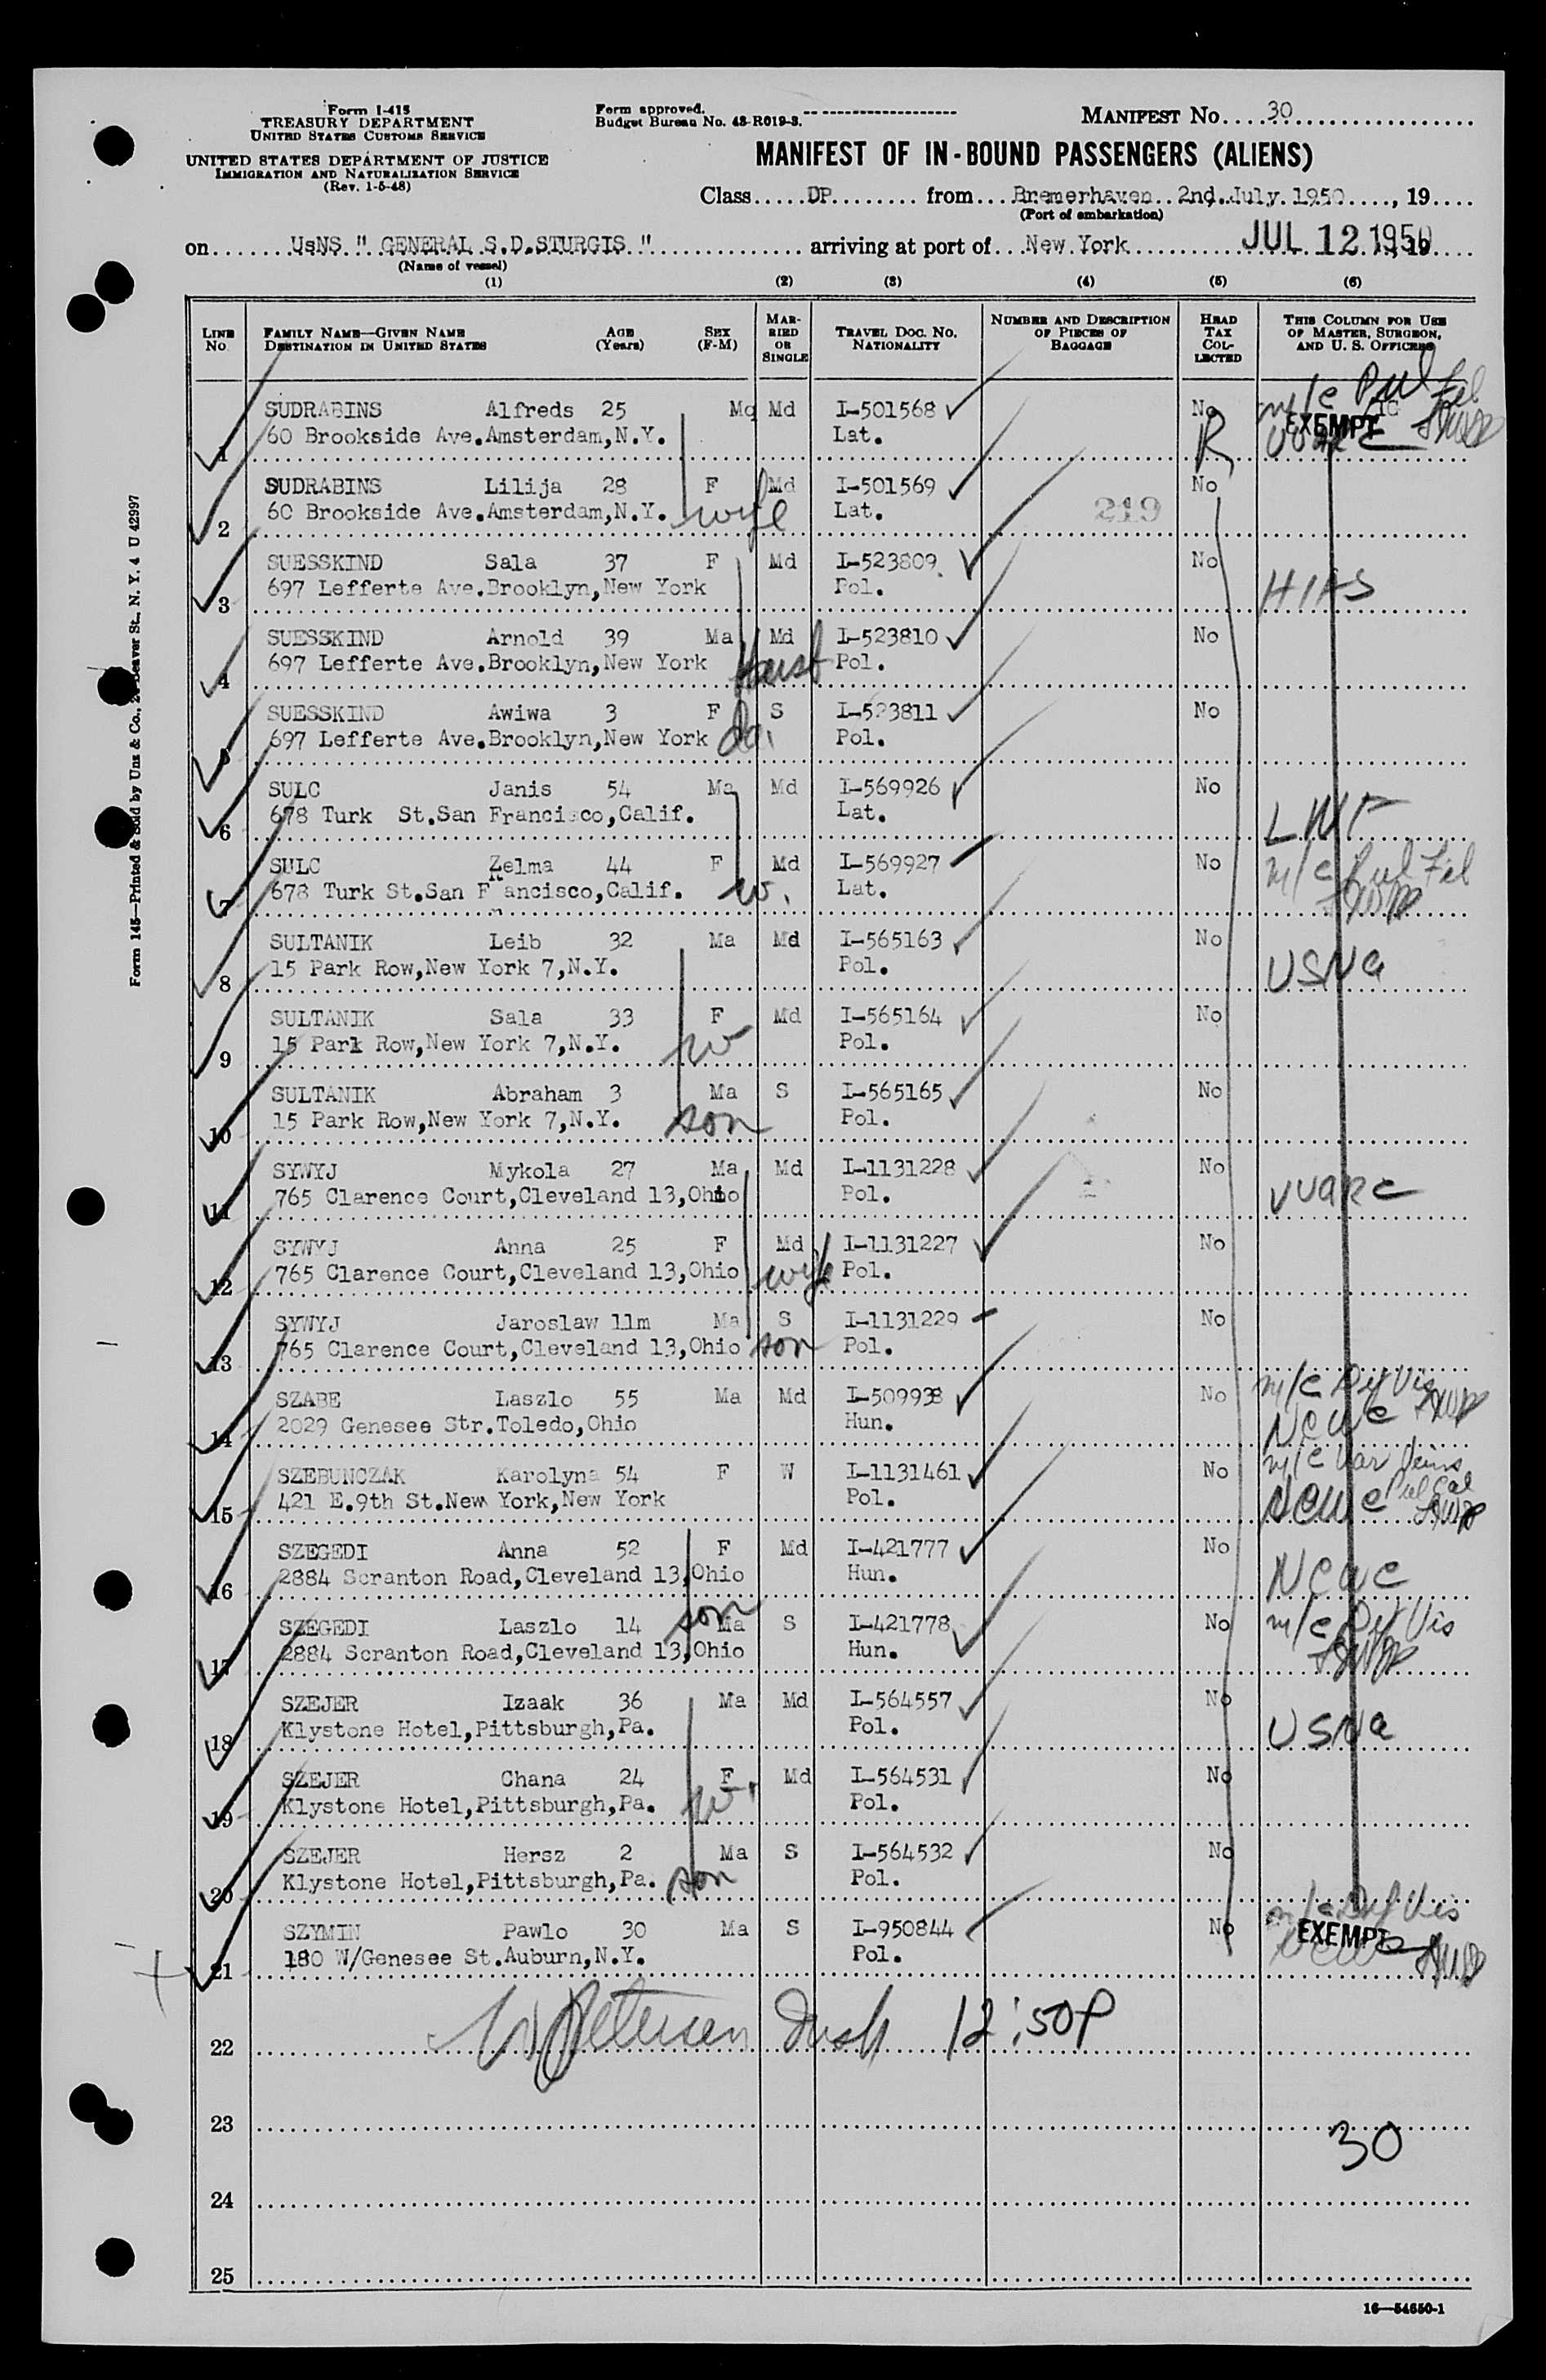 Form I-415
TREASURY DEPARTMENT
UNITED STATES CUSTOMS SERVICE
UNITED STATES DEPARTMENT OF JUSTICE
IMMIGRATION AND NATURALIZATION SERVICE
(Rev. 1-5-48)
Form approved.
Budget Bureau No. 43-R019-3.
MANIFEST No. 30
MANIFEST OF IN-BOUND PASSENGERS (ALIENS)
Class DP from Bremerhaven 2nd, July. 1950, 19
(Port of embarkation)
on UsNS " GENERAL S.D.STURGIS " arriving at port of New York JUL 12 1950, 19
(Name of vessel)
(1) (2) (3) (4) (5) (6)
LINE No. FAMILY NAME—GIVEN NAME DESTINATION IN UNITED STATES AGE (Years) SEX (F-M) MARRIED OR SINGLE TRAVEL DOC. NO. NATIONALITY NUMBER AND DESCRIPTION OF PIECES OF BAGGAGE HEAD TAX COLLECTED THIS COLUMN FOR USE OF MASTER, SURGEON, AND U. S. OFFICERS
SUDRABINS Alfreds 25 Ma Md I-501568 No m/c Pul Fil
1 60 Brookside Ave.Amsterdam,N.Y. Lat. R EXEMPT
SUDRABINS Lilija 28 F Md I-501569 No
2 60 Brookside Ave.Amsterdam,N.Y. wife Lat. 219
SUESSKIND Sala 37 F Md I-523809 No
3 697 Lefferte Ave.Brooklyn,New York Pol. HIAS
SUESSKIND Arnold 39 Ma Md I-523810 No
4 697 Lefferte Ave.Brooklyn,New York Pol.
SUESSKIND Awiwa 3 F S I-523811 No
5 697 Lefferte Ave.Brooklyn,New York da. Pol.
SULC Janis 54 Ma Md I-569926 No
6 678 Turk St.San Francisco,Calif. Lat. LWF
SULC Zelma 44 F Md I-569927 No m/c Pul Fil
7 678 Turk St.San Francisco,Calif. w. Lat.
SULTANIK Leib 32 Ma Md I-565163 No
8 15 Park Row,New York 7,N.Y. Pol. USNA
SULTANIK Sala 33 F Md I-565164 No
9 15 Park Row,New York 7,N.Y. w Pol.
SULTANIK Abraham 3 Ma S I-565165 No
10 15 Park Row,New York 7,N.Y. son Pol.
SYWYJ Mykola 27 Ma Md I-1131228 No
11 765 Clarence Court,Cleveland 13,Ohio Pol. VUARC
SYWYJ Anna 25 F Md I-1131227 No
12 765 Clarence Court,Cleveland 13,Ohio wife Pol.
SYWYJ Jaroslaw 11m Ma S I-1131229 No
13 765 Clarence Court,Cleveland 13,Ohio son Pol.
SZABE Laszlo 55 Ma Md I-509938 No m/c Def Vis
14 2029 Genesee Str.Toledo,Ohio Hun. NCWC
SZEBUNCZAK Karolyna 54 F W I-1131461 No m/c Var Veins
15 421 E.9th St.New York,New York Pol. NCWC Pul Cal
SZEGEDI Anna 52 F Md I-421777 No
16 2884 Scranton Road,Cleveland 13,Ohio Hun. NCWC
SZEGEDI Laszlo 14 son Ma S I-421778 No m/c Def Vis
17 2884 Scranton Road,Cleveland 13,Ohio Hun.
SZEJER Izaak 36 Ma Md I-564557 No
18 Klystone Hotel,Pittsburgh,Pa. Pol. USNA
SZEJER Chana 24 F Md I-564531 No
19 Klystone Hotel,Pittsburgh,Pa. w. Pol.
SZEJER Hersz 2 Ma S I-564532 No
20 Klystone Hotel,Pittsburgh,Pa. son Pol.
SZYMIN Pawlo 30 Ma S I-950844 No m/c Def Vis
21 180 W/Genesee St.Auburn,N.Y. Pol. EXEMPT
22 12:50P
23
30
24
25
16—54650-1